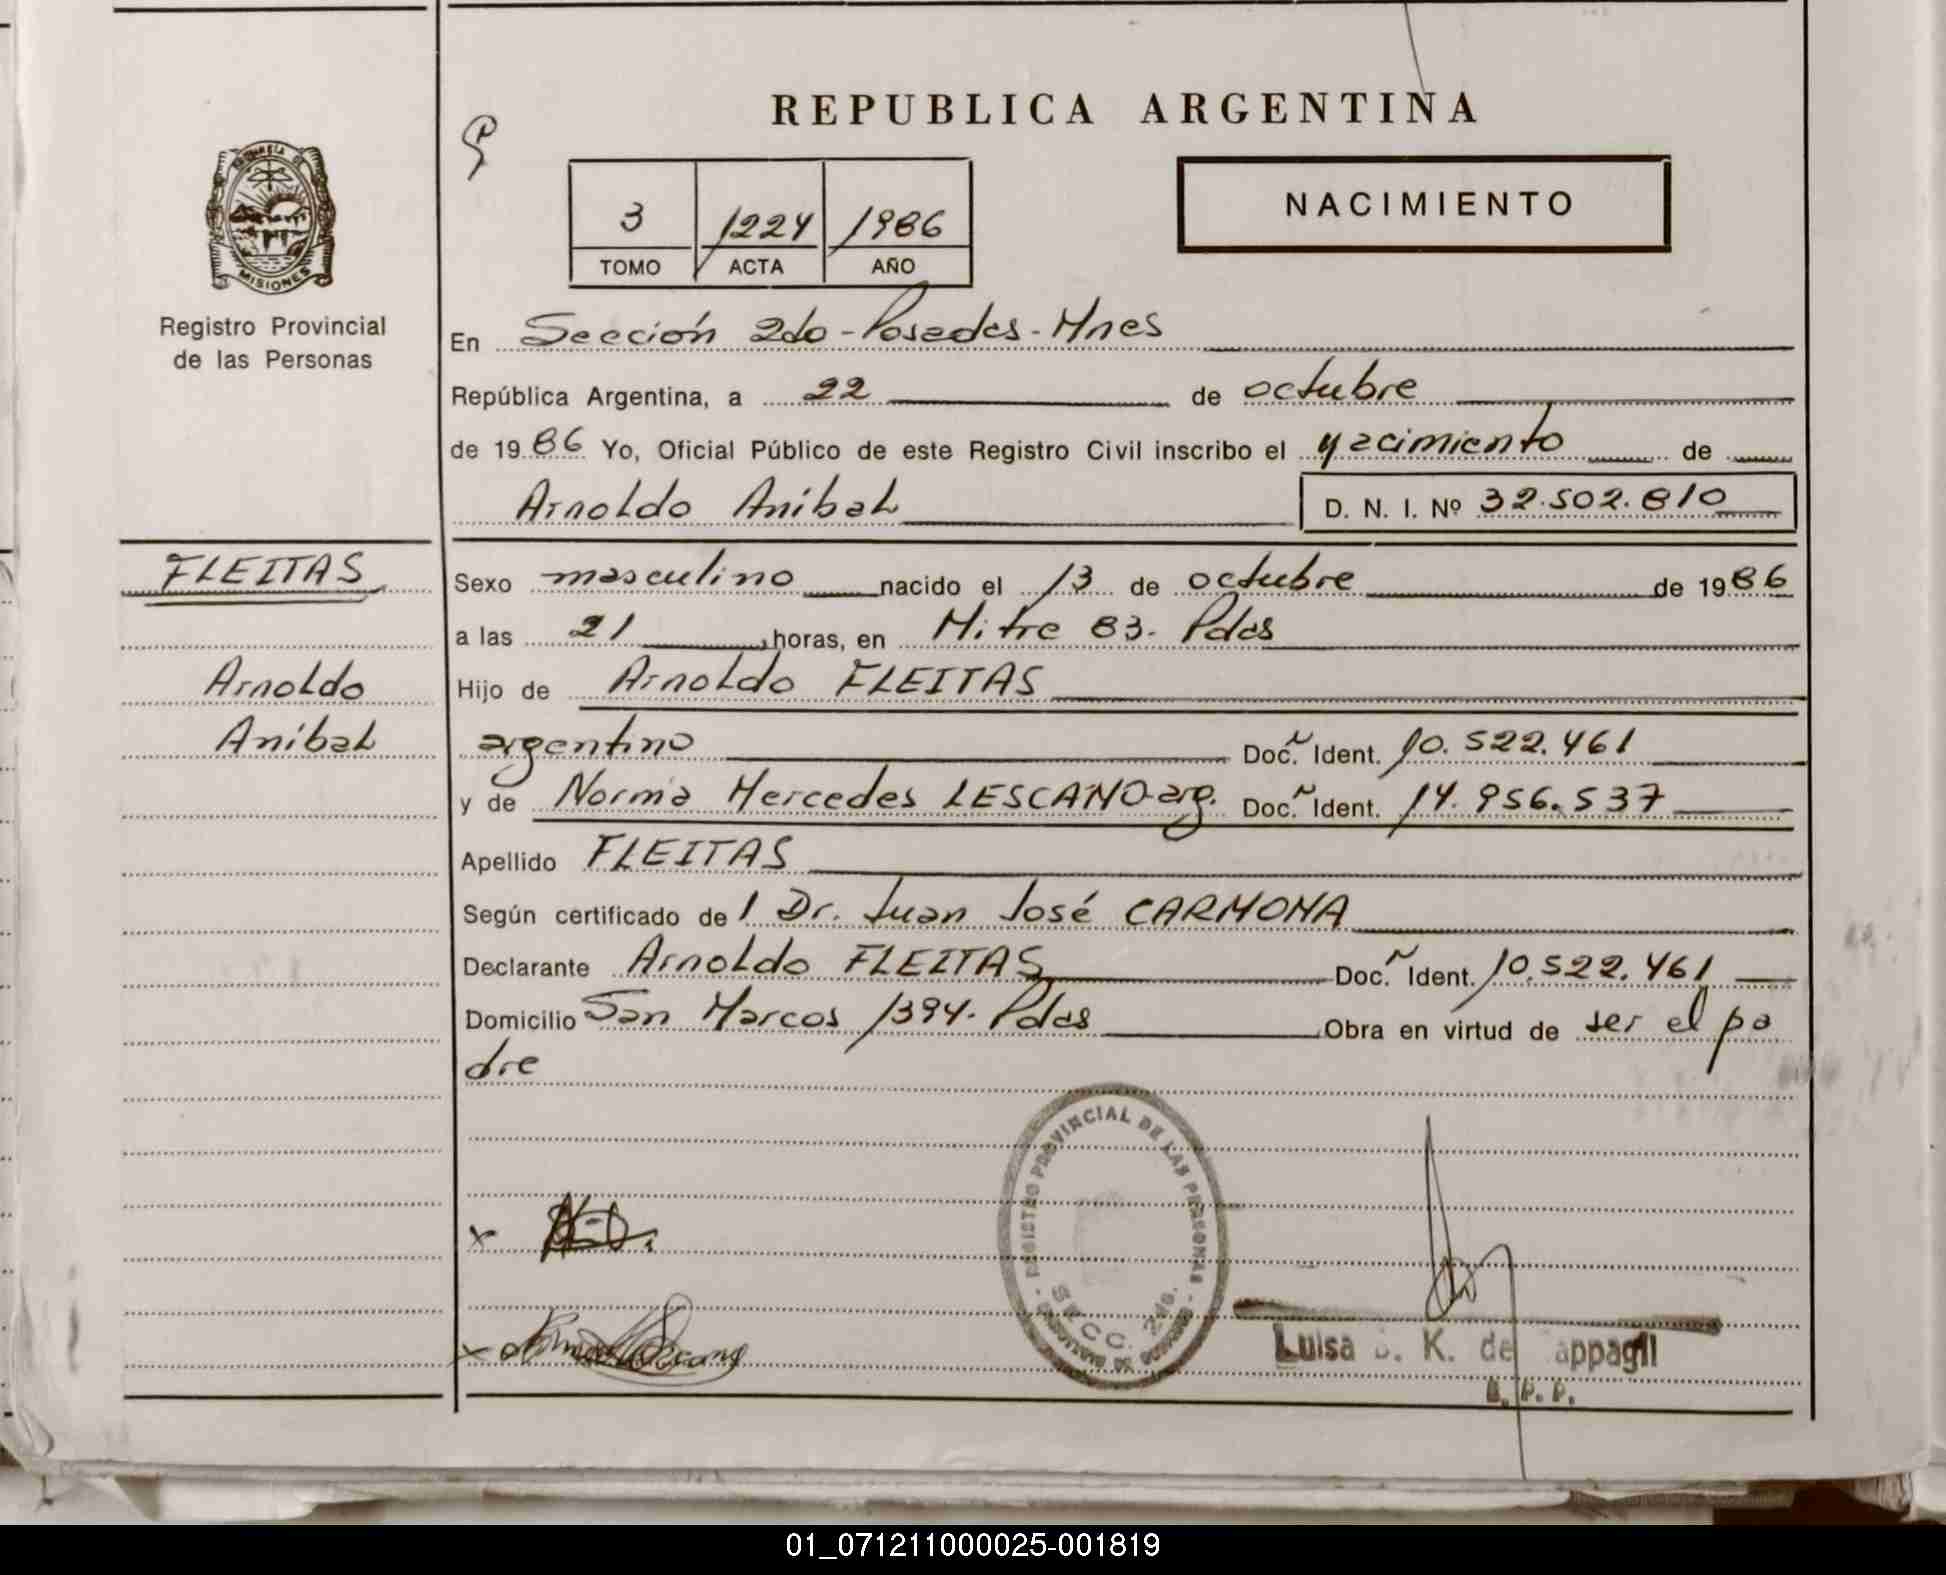 REPUBLICA ARGENTINA
3 1224 1986
TOMO ACTA AÑO
NACIMIENTO
MISIONES
Registro Provincial
de las Personas
En Sección 2do - Posadas - Mnes
República Argentina, a 22 de octubre
de 1986 Yo, Oficial Público de este Registro Civil inscribo el nacimiento de
Arnoldo Aníbal D. N. I. Nº 32.502.810
FLEITAS
Arnoldo
Aníbal
Sexo masculino nacido el 13 de octubre de 1986
a las 21 horas, en Mitre 83. Pdas
Hijo de Arnoldo FLEITAS
argentino Doc. Ident. 10.522.461
y de Norma Mercedes LESCANO-arg. Doc. Ident. 14.956.537
Apellido FLEITAS
Según certificado de l Dr. Juan José CARMONA
Declarante Arnoldo FLEITAS Doc. Ident. 10.522.461
Domicilio San Marcos 1394. Pdas Obra en virtud de ser el pa
dre
REGISTRO PROVINCIAL DE LAS PERSONAS
SECC. 2do.
Luisa K. de appagli